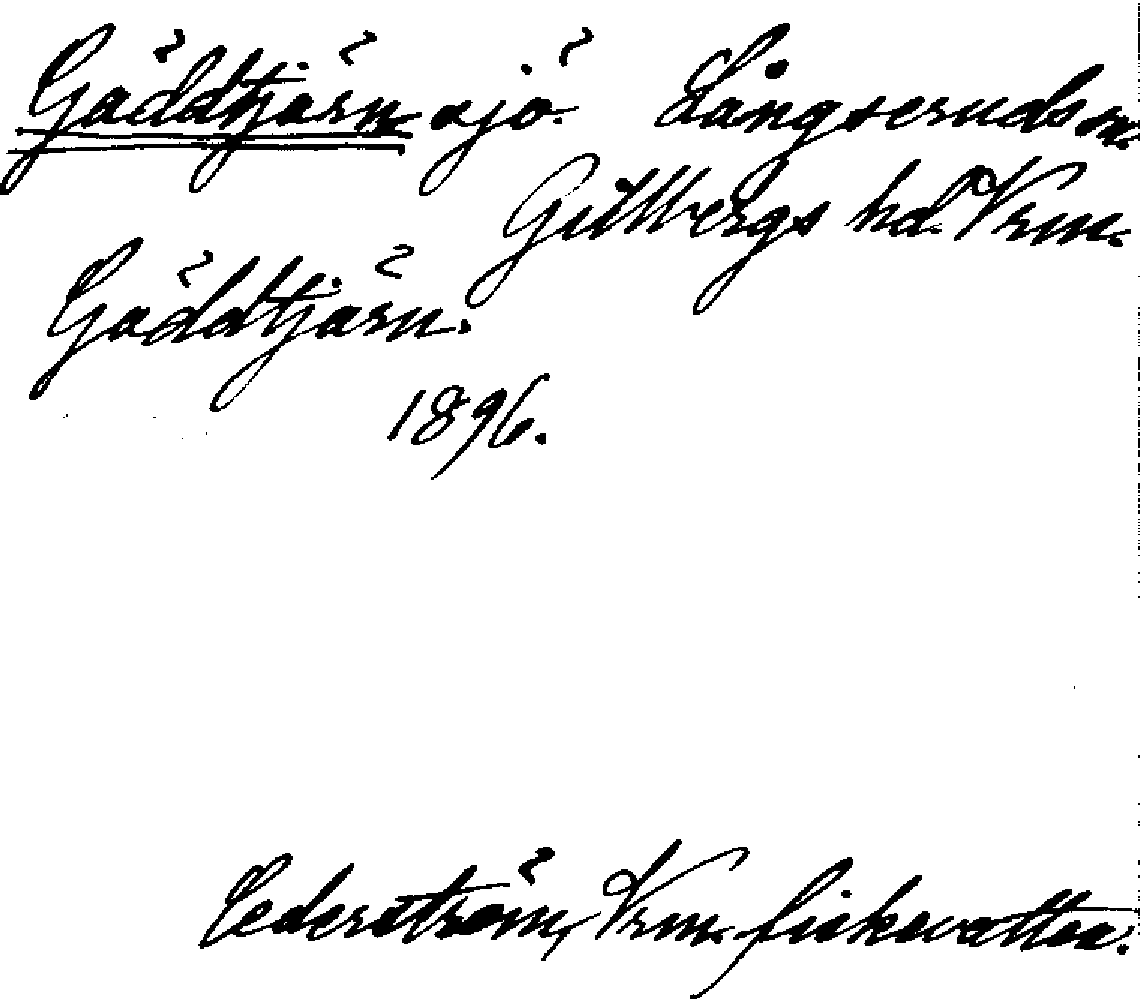 Gäddtjärn sjö. Långseruds sn.
Gillbergs hd. Vrm.
Gäddtjärn.
1896.
Cederström, Vrm. fiskevatten.